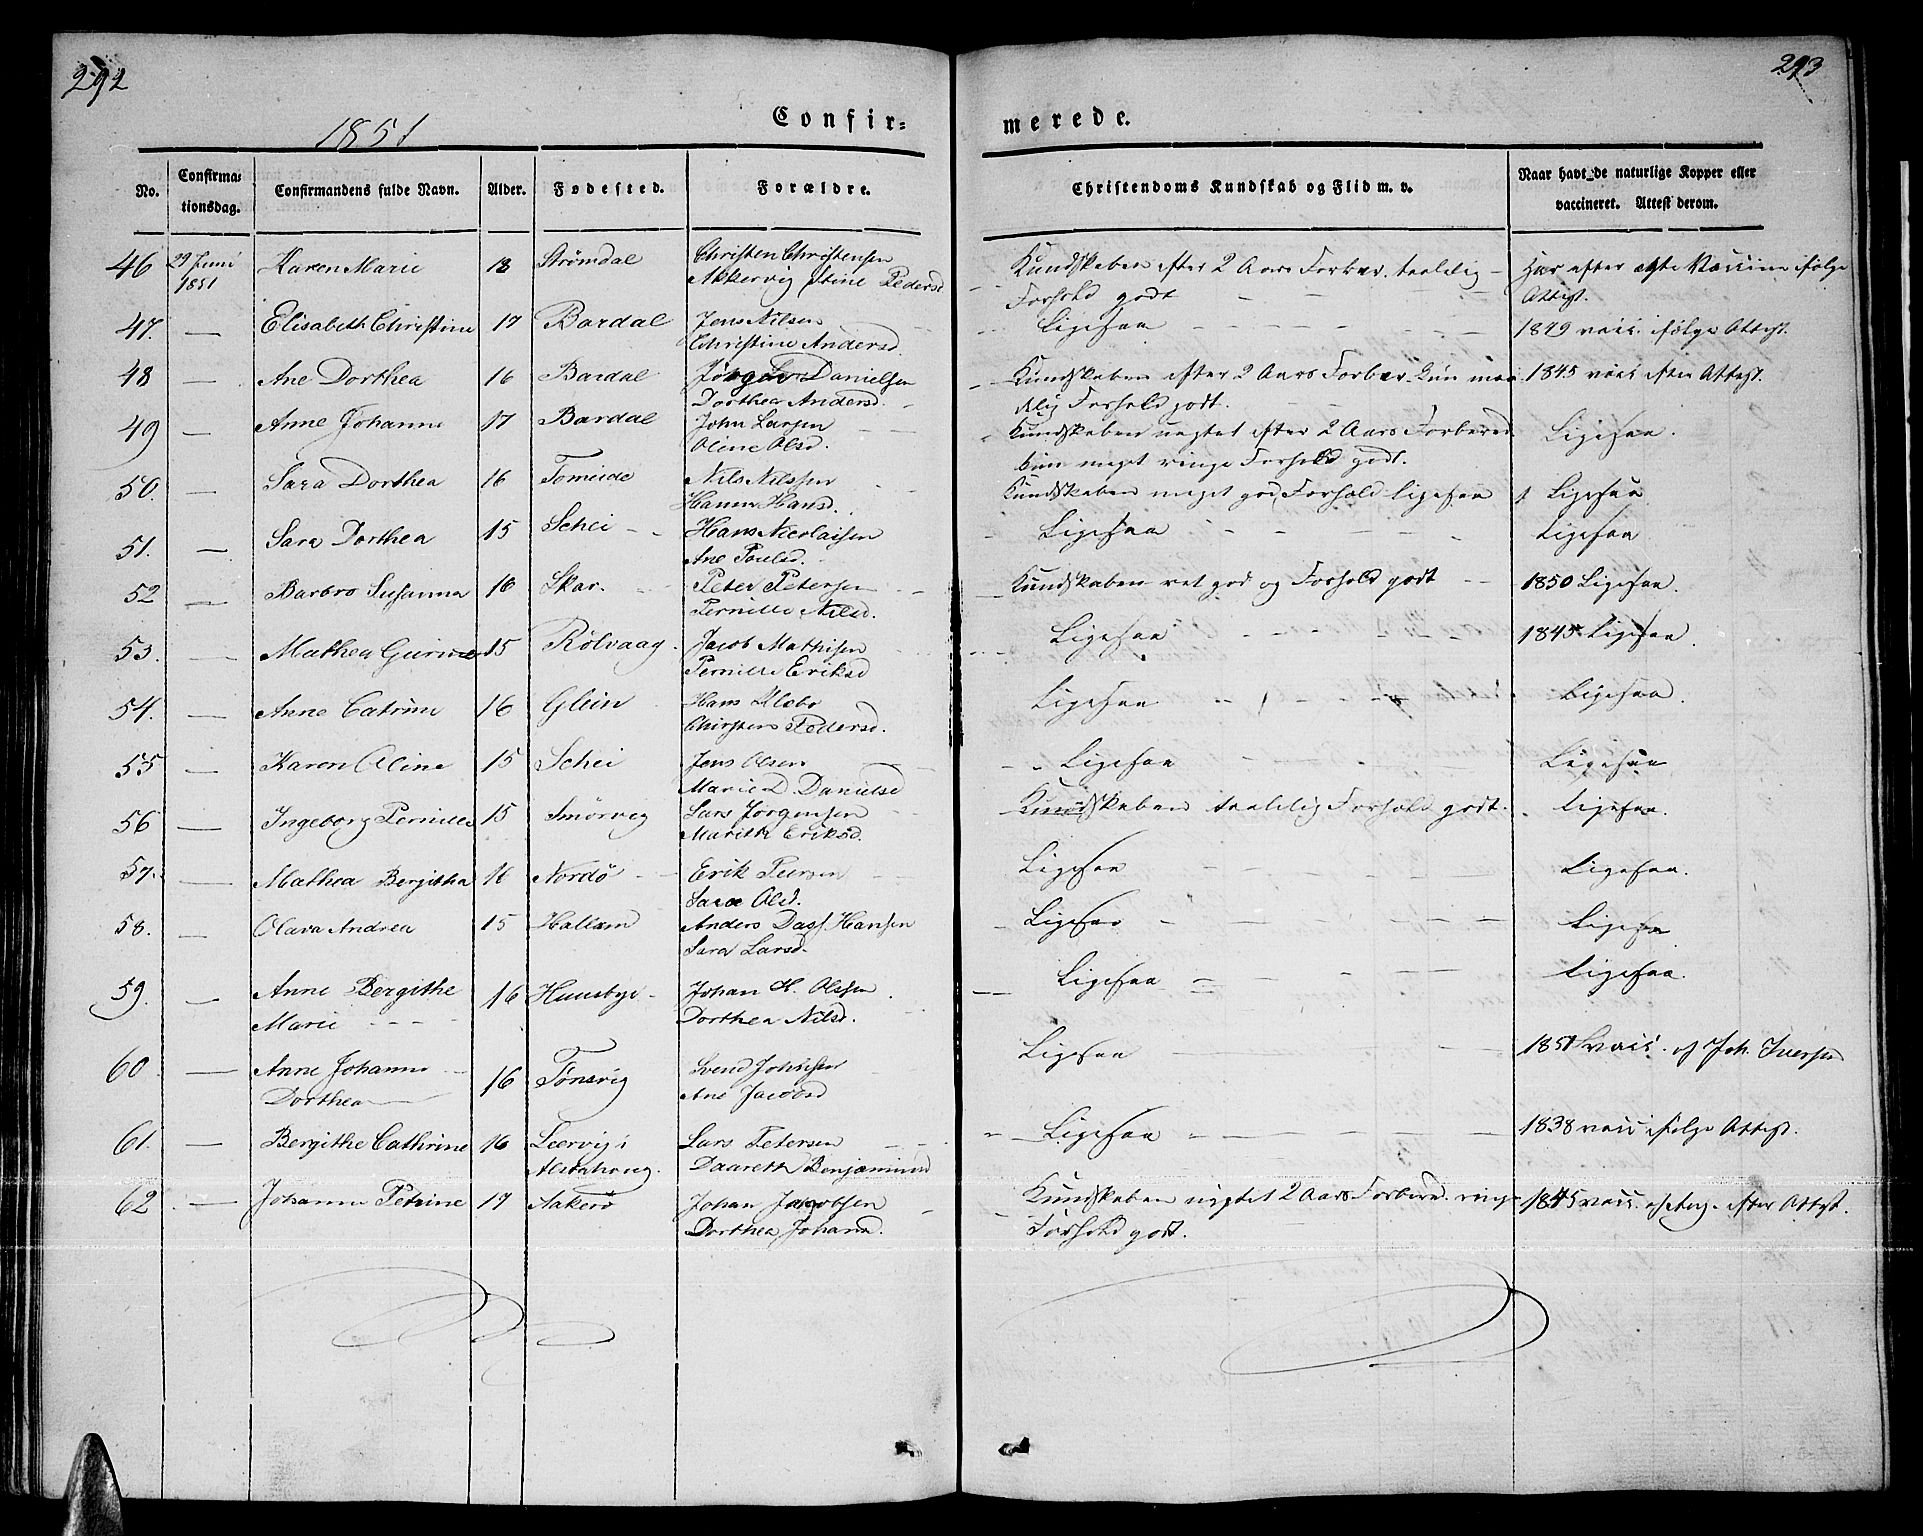 292
293
1851
Confir=
merede.
No.
Confirma-
tionsdag.
Confirmandens fulde Navn.
Alder.
Fødested.
Forældre.
Christendoms Kundskab og Flid m. v.
Naar havt de naturlige Kopper eller
vaccineret. Attest derom.
46 29 Juni Karen Marie 18 Strømdal Christen Christensen Kundskaben efter 2 Aars Forber. taalelig Har efter Vaccine ifølge
1851 Akkervig Stine Peders Forhold godt Attest.
47. — Elisabeth Christine 17 Bardal Jens Nilsen Ligesaa 1849 vacc. ifølge Attest.
Christine Andersd.
48 — Ane Dorthea 16 Bardal Danielsen Kundskaben efter 2 Aars Forber. kun maa 1845 vacc efter Attest.
Dorthea Andersd. delig Forhold godt.
49 — Anne Johanne 17 Bardal John Larsen Kundskaben uagtet efter 2 Aars Forbered. Ligesaa.
Oline Olsd. kun meget ringe Forhold godt.
50. — Sara Dorthea 16 Tomeide Nils Nilssen Kundskaben meget god, Forhold ligesaa Ligesaa
Hanna Hansd.
51. — Sara Dorthea 15 Schei Hans Nicolaisen Ligesaa Ligesaa
Ane Paulsd.
52 — Barbro Susanna 16 Skar. Peter Petersen Kundskaben ret god og Forhold godt 1850 Ligesaa.
Pernille Nilsd.
53. — Mathea Gurine 15 Rølvaag Jacob Mathisen Ligesaa 1845 Ligesaa.
Pernille Eriksd
54. — Anne Catrine 16 Glein Hans Klæbo Ligesaa Ligesaa.
Pedersd.
55 — Karen Oline 15 Schei Jens Olsen Ligesaa Ligesaa
Marie D. Danielsd
56 — Ingeborg Pernille 15 Smørvig Lars Jørgensen Kundskaben taalelig Forhold godt. Ligesaa.
Marith Eriksd.
57. — Mathea Bergitha 16 Nordø Erik Ligesaa Ligesaa.
Sara Olsd.
58. — Olava Andrea 15 Hallem Anders Dass Hansen Ligesaa Ligesaa
Sara Larsd.
59. — Anne Bergithe 16 Huusbye Johan H. Olssen Ligesaa Ligesaa.
Marie Dorthea Nilsd.
60 — Anne Johanne 16 Tønsvig Svend Johnsen Ligesaa 1851 vacc. af Joh. Iversen
Dorthea Ane Jacobsd
61. — Bergithe Cathrine 16 Leervig i Lars Petersen Ligesaa 1838 vacc ifølge Attest.
Alstahoug. Daareth Benjaminsd
62 — Johanna Petrine 17 Aakerø Johan Jacobsen Kundskaben uagtet 2 Aars Forbered. ringe 1845 vacc. efter Attest.
Dorthea Johansd. Forhold godt.